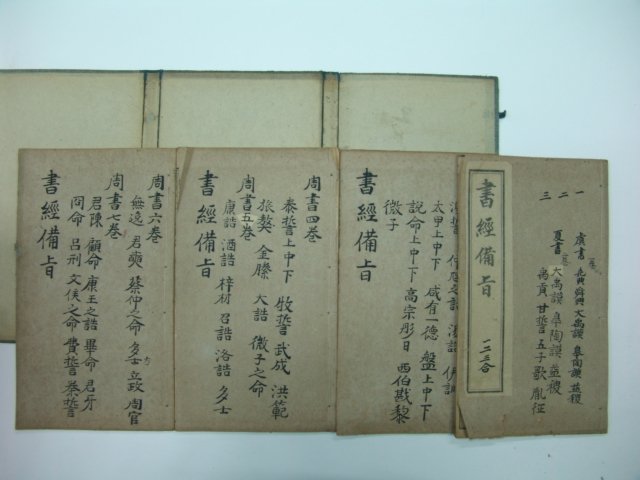 一
二
三
虞書 堯典 舜典 大禹謨 皐陶謨 益稷
夏書 大禹謨 皐陶謨 益稷
禹貢 甘誓 五子歌 胤征
書經備旨
一二三合
太甲上中下 咸有一德 盤上中下
說命上中下 高宗肜日 西伯戡黎
微子
書經備旨
周書四卷
泰誓上中下 牧誓 武成 洪範
旅獒 金縢 大誥 微子之命
周書五卷
康誥 酒誥 梓材 召誥 洛誥 多士
書經備旨
周書六卷
無逸 君奭 蔡仲之命 多士方 立政 周官
周書七卷
君陳 顧命 康王之誥 畢命 君牙
冏命 呂刑 文侯之命 費誓 秦誓
書經備旨